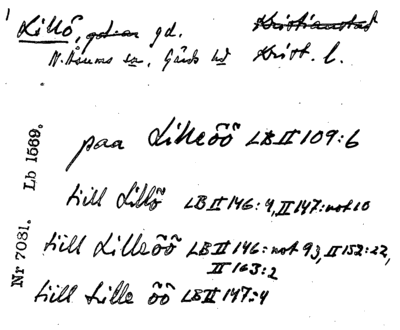 Lillö, gd.
N. Åsums sn, Gärds hd Krist. l.
paa Lilleöö LB II 109:6
till Lillö LB II 146:4, II 147: not 10
till Lilleöö LB II 146: not 93, II 152:22,
II 163:2
till Lille öö LB II 147:4
Lb 1569.
Nr 7081.